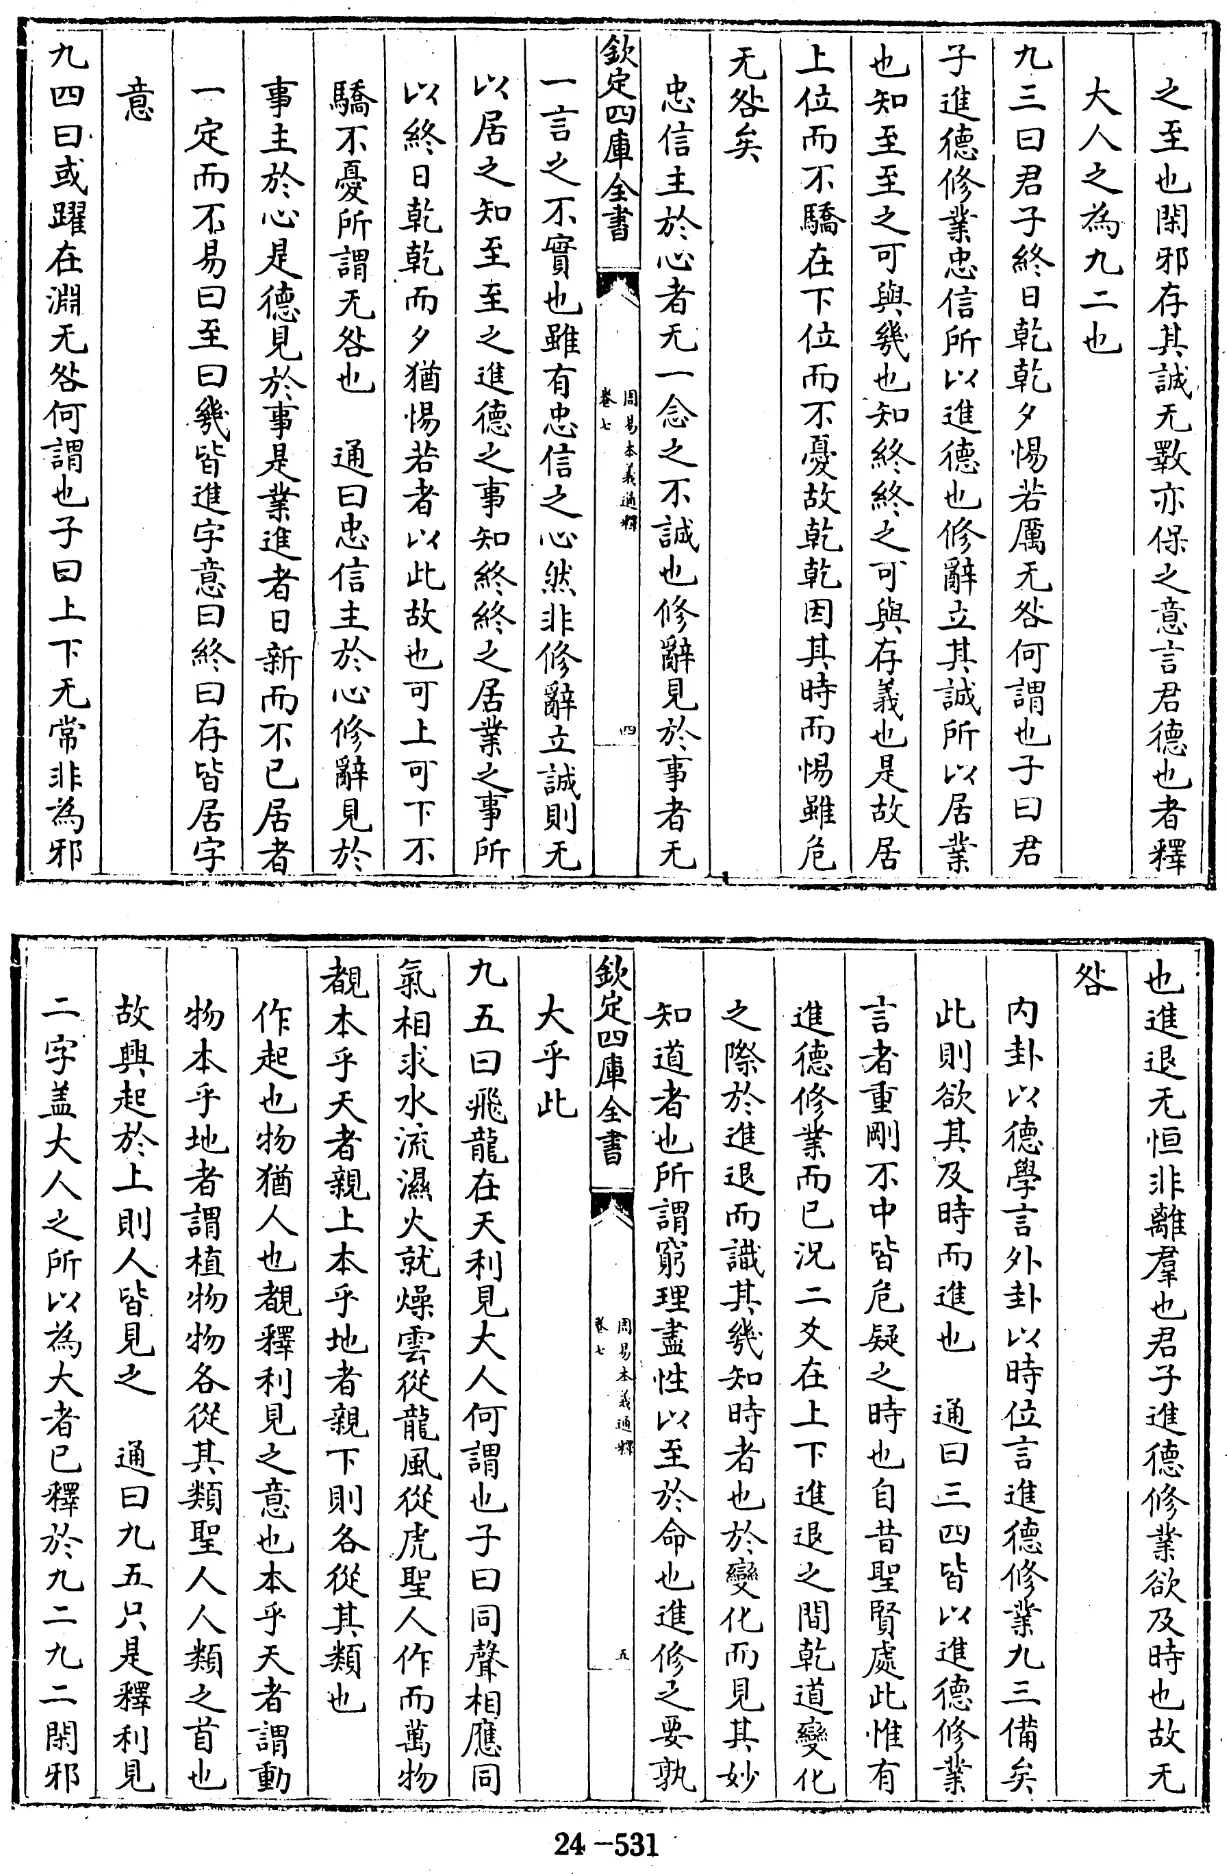 之至也閑邪存其誠无斁亦保之意言君德也者釋
大人之為九二也
九三曰君子終日乾乾夕惕若厲无咎何謂也子曰君
子進德修業忠信所以進德也修辭立其誠所以居業
也知至至之可與幾也知終終之可與存義也是故居
上位而不驕在下位而不憂故乾乾因其時而惕雖危
无咎矣
忠信主於心者无一念之不誠也修辭見於事者无
欽定四庫全書
周易本義通釋
卷七
四
一言之不實也雖有忠信之心然非修辭立誠則无
以居之知至至之進德之事知終終之居業之事所
以終日乾乾而夕猶惕若者以此故也可上可下不
驕不憂所謂无咎也 通曰忠信主於心修辭見於
事主於心是德見於事是業進者日新而不已居者
一定而不易曰至曰幾皆進字意曰終曰存皆居字
意
九四曰或躍在淵无咎何謂也子曰上下无常非為邪
也進退无恒非離羣也君子進德修業欲及時也故无
咎
内卦以德學言外卦以時位言進德修業九三備矣
此則欲其及時而進也 通曰三四皆以進德修業
言者重剛不中皆危疑之時也自昔聖賢處此惟有
進德修業而已況二爻在上下進退之間乾道變化
之際於進退而識其幾知時者也於變化而見其妙
知道者也所謂窮理盡性以至於命也進修之要孰
欽定四庫全書
周易本義通釋
卷七
五
大乎此
九五曰飛龍在天利見大人何謂也子曰同聲相應同
氣相求水流濕火就燥雲從龍風從虎聖人作而萬物
覩本乎天者親上本乎地者親下則各從其類也
作起也物猶人也覩釋利見之意也本乎天者謂動
物本乎地者謂植物物各從其類聖人人類之首也
故興起於上則人皆見之 通曰九五只是釋利見
二字盖大人之所以為大者已釋於九二九二閑邪
24-531